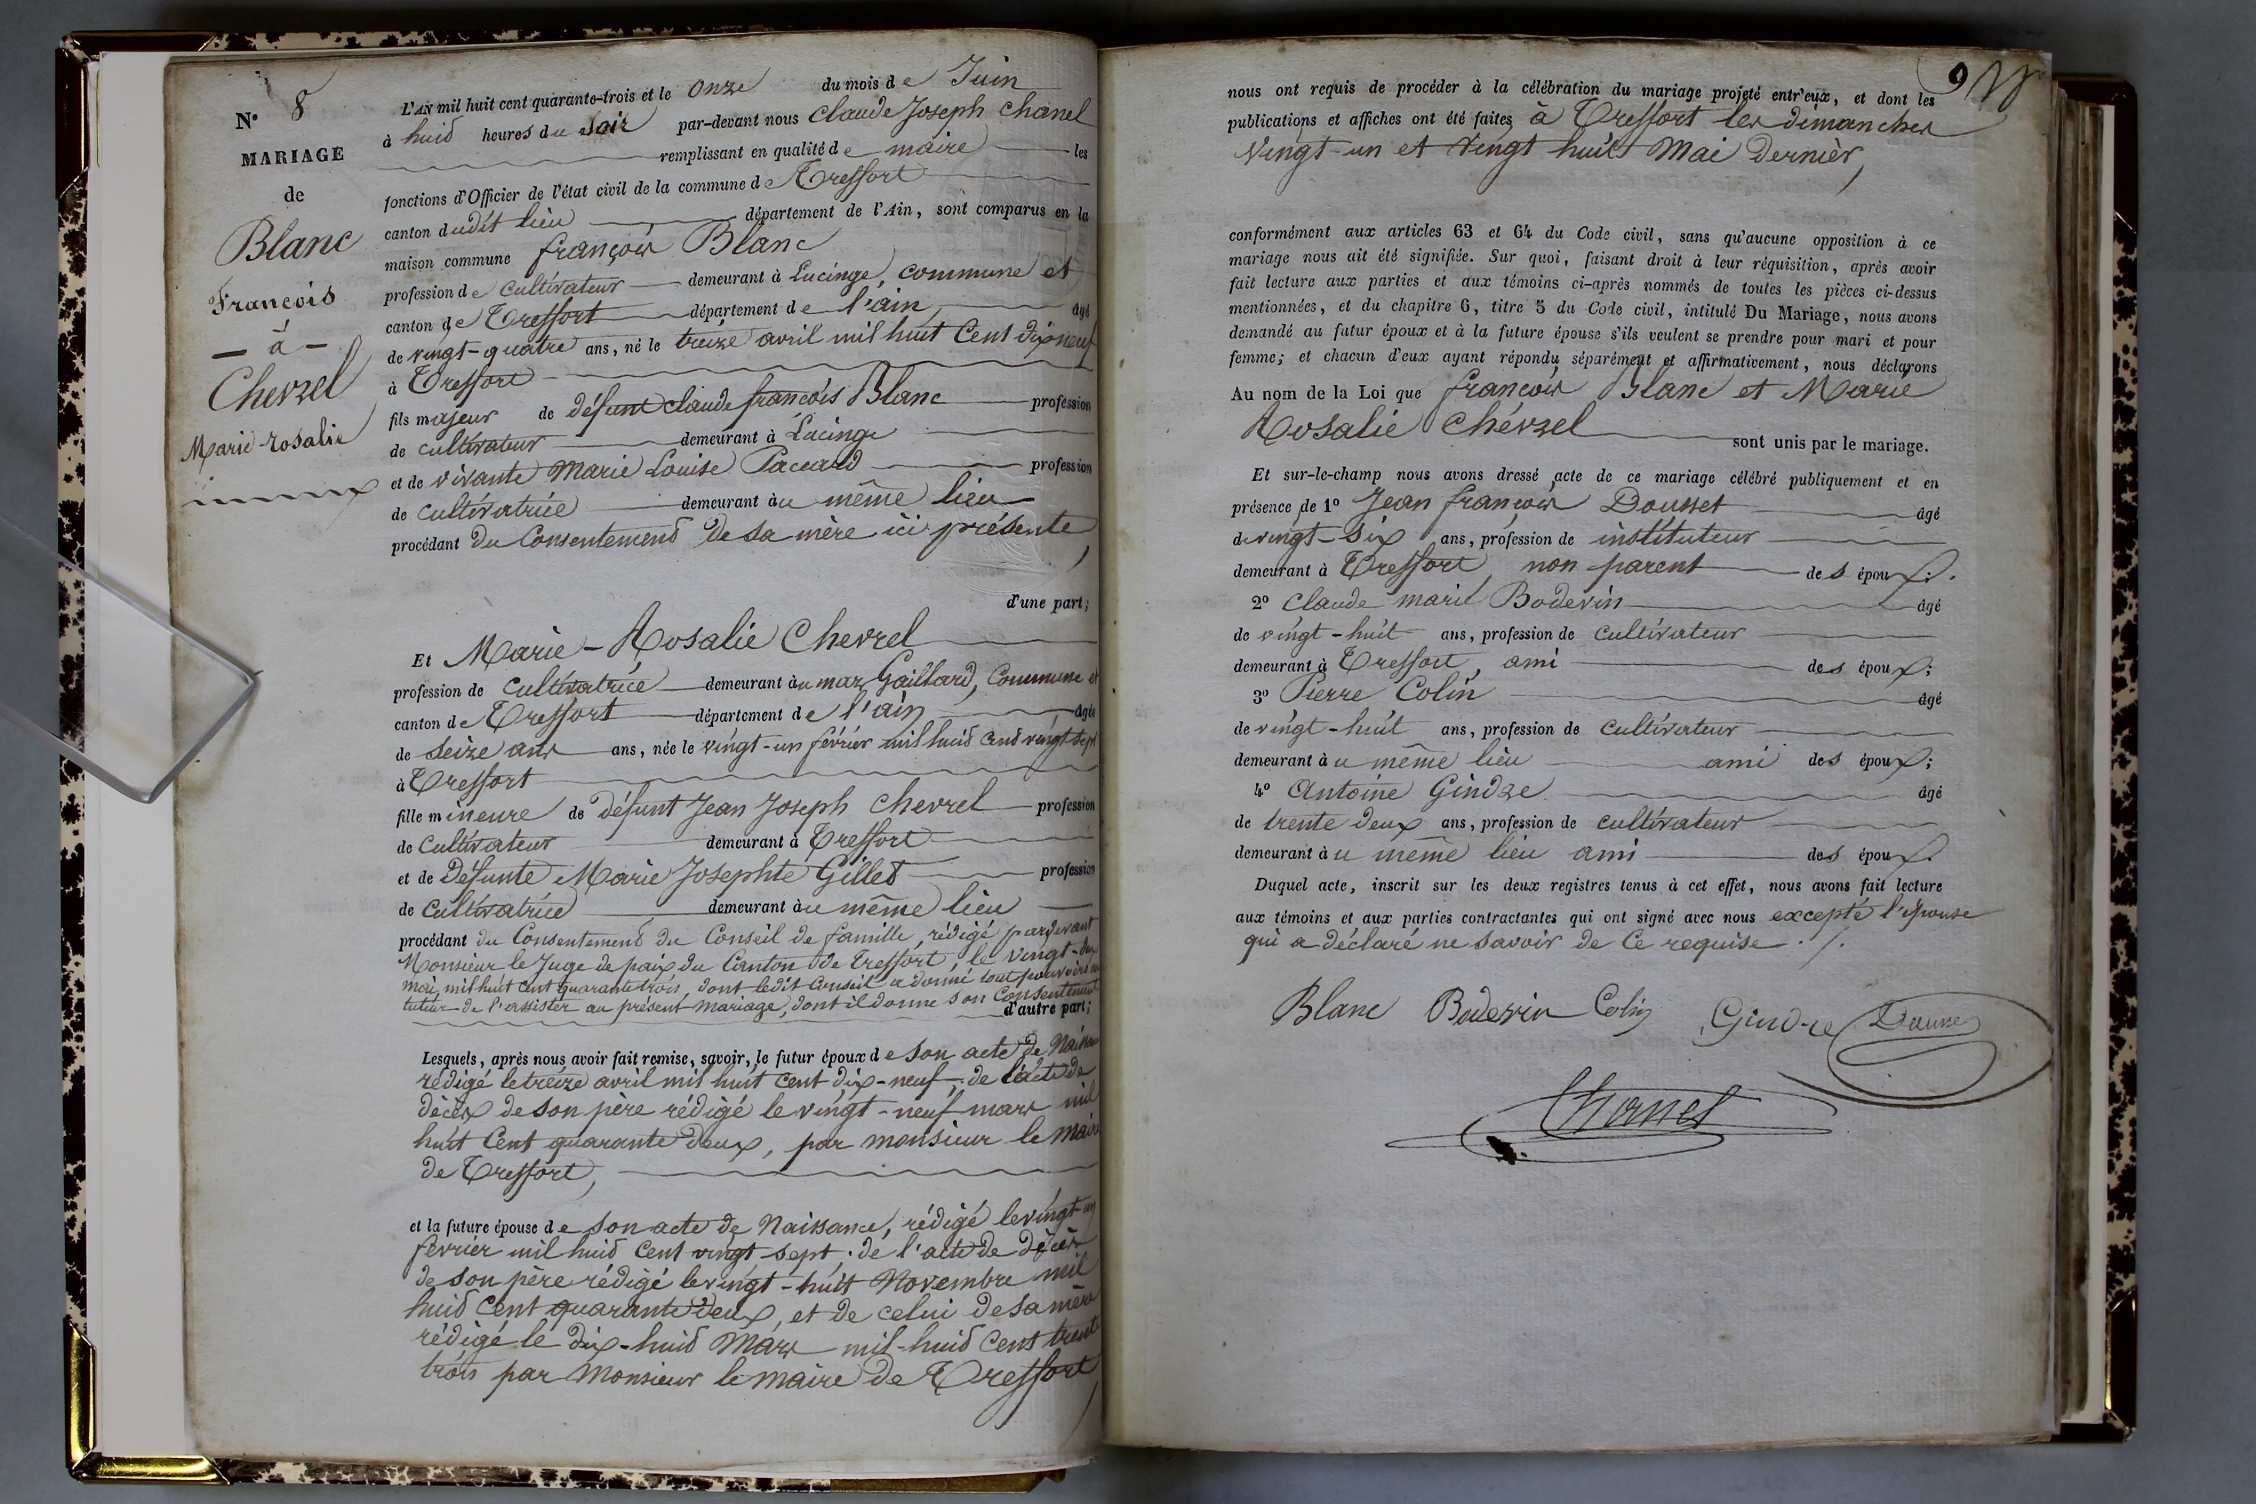 N° 8
MARIAGE
de
Blanc
François
— à —
Chevrel
Marie-rosalie
L'AN mil huit cent quarante-trois et le onze du mois de Juin
à huit heures du soir par-devant nous Claude Joseph Chanel
remplissant en qualité de maire les
fonctions d'Officier de l'état civil de la commune de Treffort
canton dudit lieu département de l'Ain, sont comparus en la
maison commune françois Blanc
profession de cultivateur demeurant à Lucinge, commune et
canton de Treffort département de l'ain âgé
de vingt-quatre ans, né le treize avril mil huit Cent dix neuf
à Treffort
fils majeur de défunt claude françois Blanc profession
de cultivateur demeurant à Lucinge
et de vivante Marie Louise Paccard profession
de cultivatrice demeurant au même lieu
procédant du Consentement de sa mère ici présente,
d'une part;
Et Marie-Rosalie Chevrel
profession de cultivatrice demeurant au maz Gaillard, Commune et
canton de Treffort département de l'ain âgée
de seize ans ans, née le vingt-un février mil huit cent vingt sept
à Treffort
fille mineure de défunt Jean Joseph Chevrel profession
de Cultivateur demeurant à Treffort
et de défunte Marie Josephte Gillet profession
de Cultivatrice demeurant au même lieu
procédant du Consentement du Conseil de famille, rédigé pardevant
Monsieur le Juge de paix du Canton de Treffort, le vingt-deux
mai mil huit cent quarante trois, dont ledit Conseil a donné tout pouvoir au
tuteur de l'assister au présent mariage, dont il donne son Consentement
d'autre part;
Lesquels, après nous avoir fait remise, savoir, le futur époux de son acte de Naissance
rédigé le treize avril mil huit cent dix-neuf; de l'acte de
décès de son père rédigé le vingt-neuf mars mil
huit Cent quarante deux, par monsieur le maire
de Treffort,
et la future épouse de son acte de Naissance, rédigé le vingt-un
février mil huit Cent vingt sept; de l'acte de décès
de son père rédigé le vingt-huit Novembre mil
huit Cent quarante deux, et de celui de sa mère
rédigé le dix-huit Mars mil-huit Cent trente
trois par Monsieur le maire de Treffort
9
nous ont requis de procéder à la célébration du mariage projeté entr'eux, et dont les
publications et affiches ont été faites à Treffort les dimanches
vingt-un et vingt huit Mai Dernier,
conformément aux articles 63 et 64 du Code civil, sans qu'aucune opposition à ce
mariage nous ait été signifiée. Sur quoi, faisant droit à leur réquisition, après avoir
fait lecture aux parties et aux témoins ci-après nommés de toutes les pièces ci-dessus
mentionnées, et du chapitre 6, titre 5 du Code civil, intitulé Du Mariage, nous avons
demandé au futur époux et à la future épouse s'ils veulent se prendre pour mari et pour
femme; et chacun d'eux ayant répondu séparément et affirmativement, nous déclarons
Au nom de la Loi que françois Blanc et Marie
Rosalie Chévrel sont unis par le mariage.
Et sur-le-champ nous avons dressé acte de ce mariage célébré publiquement et en
présence de 1° Jean françois Dousset âgé
de vingt-six ans, profession de instituteur
demeurant à Treffort, non parent des époux;
2° Claude marie Bodevin âgé
de vingt-huit ans, profession de Cultivateur
demeurant à Treffort, ami des époux;
3° Pierre Colin âgé
de vingt-huit ans, profession de Cultivateur
demeurant au même lieu ami des époux;
4° Antoine Gindre âgé
de trente deux ans, profession de cultivateur
demeurant au même lieu ami des époux.
Duquel acte, inscrit sur les deux registres tenus à cet effet, nous avons fait lecture
aux témoins et aux parties contractantes qui ont signé avec nous excepté l'épouse
qui a déclaré ne savoir de Ce requise ./.
Blanc Bodevin Colin Gindre
Chanel